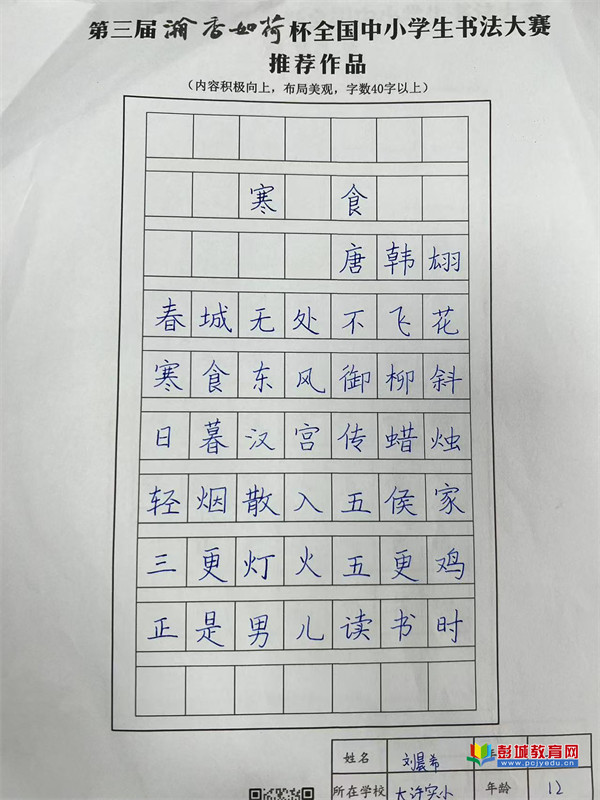 第三届瀚香如荷杯全国中小学生书法大赛
推荐作品
（内容积极向上，布局美观，字数40字以上）
寒食
唐韩翃
春城无处不飞花
寒食东风御柳斜
日暮汉宫传蜡烛
轻烟散入五侯家
三更灯火五更鸡
正是男儿读书时
姓名 刘晨希
彭城教育网
www.pcjyedu.cn
所在学校 大许实小 年龄 12